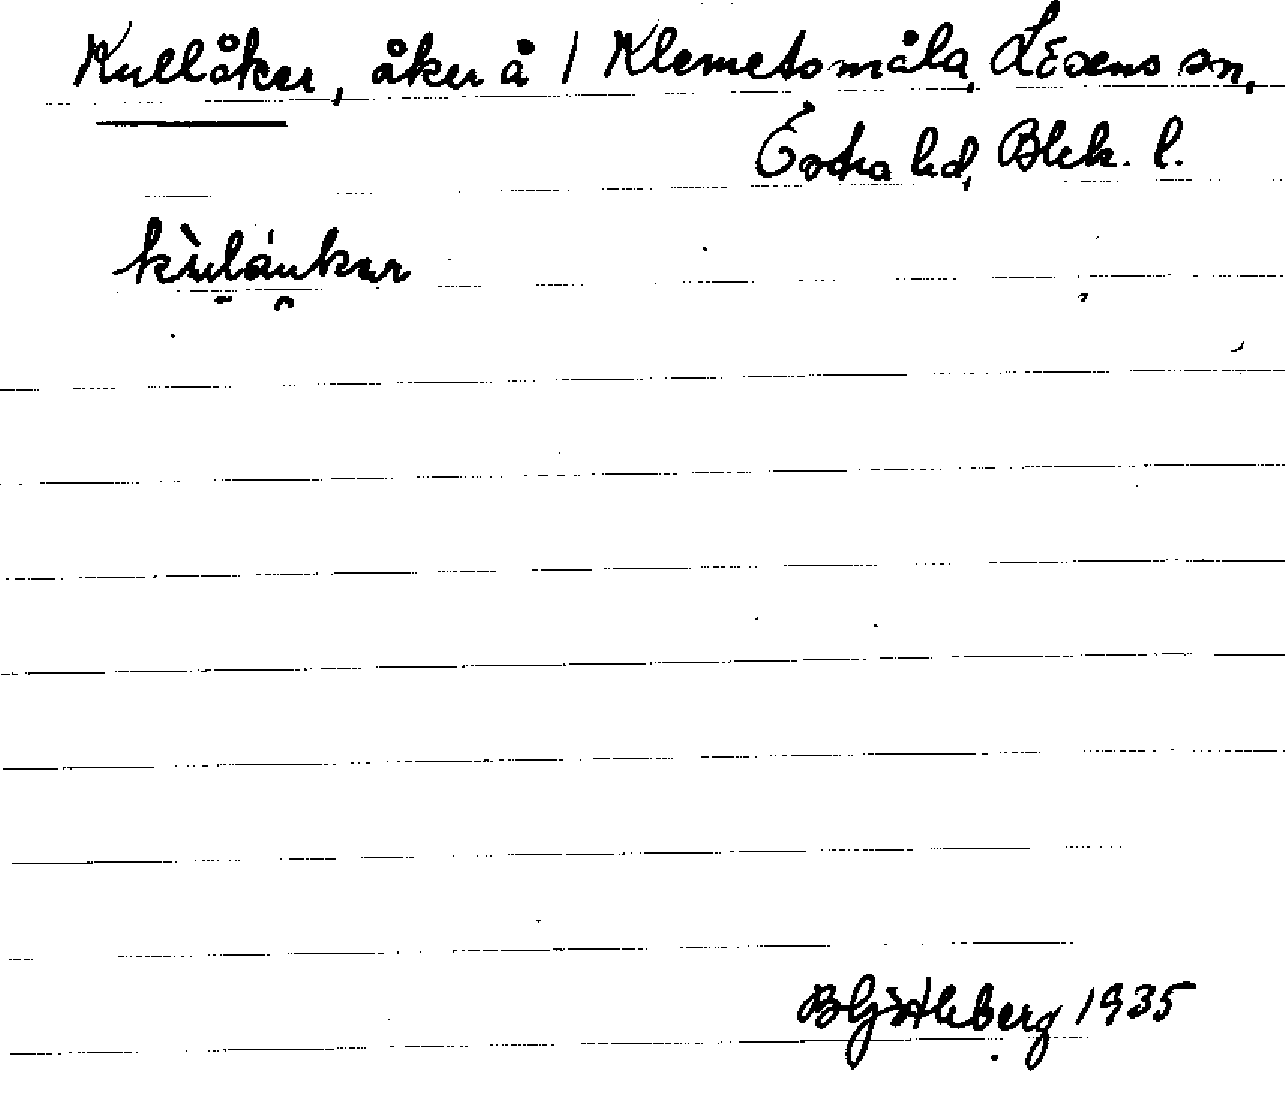 Kullåker, åker å 1 Klemetsmåla, Lösens sn,
Östra hd, Blek. l.
kùláukər
1935